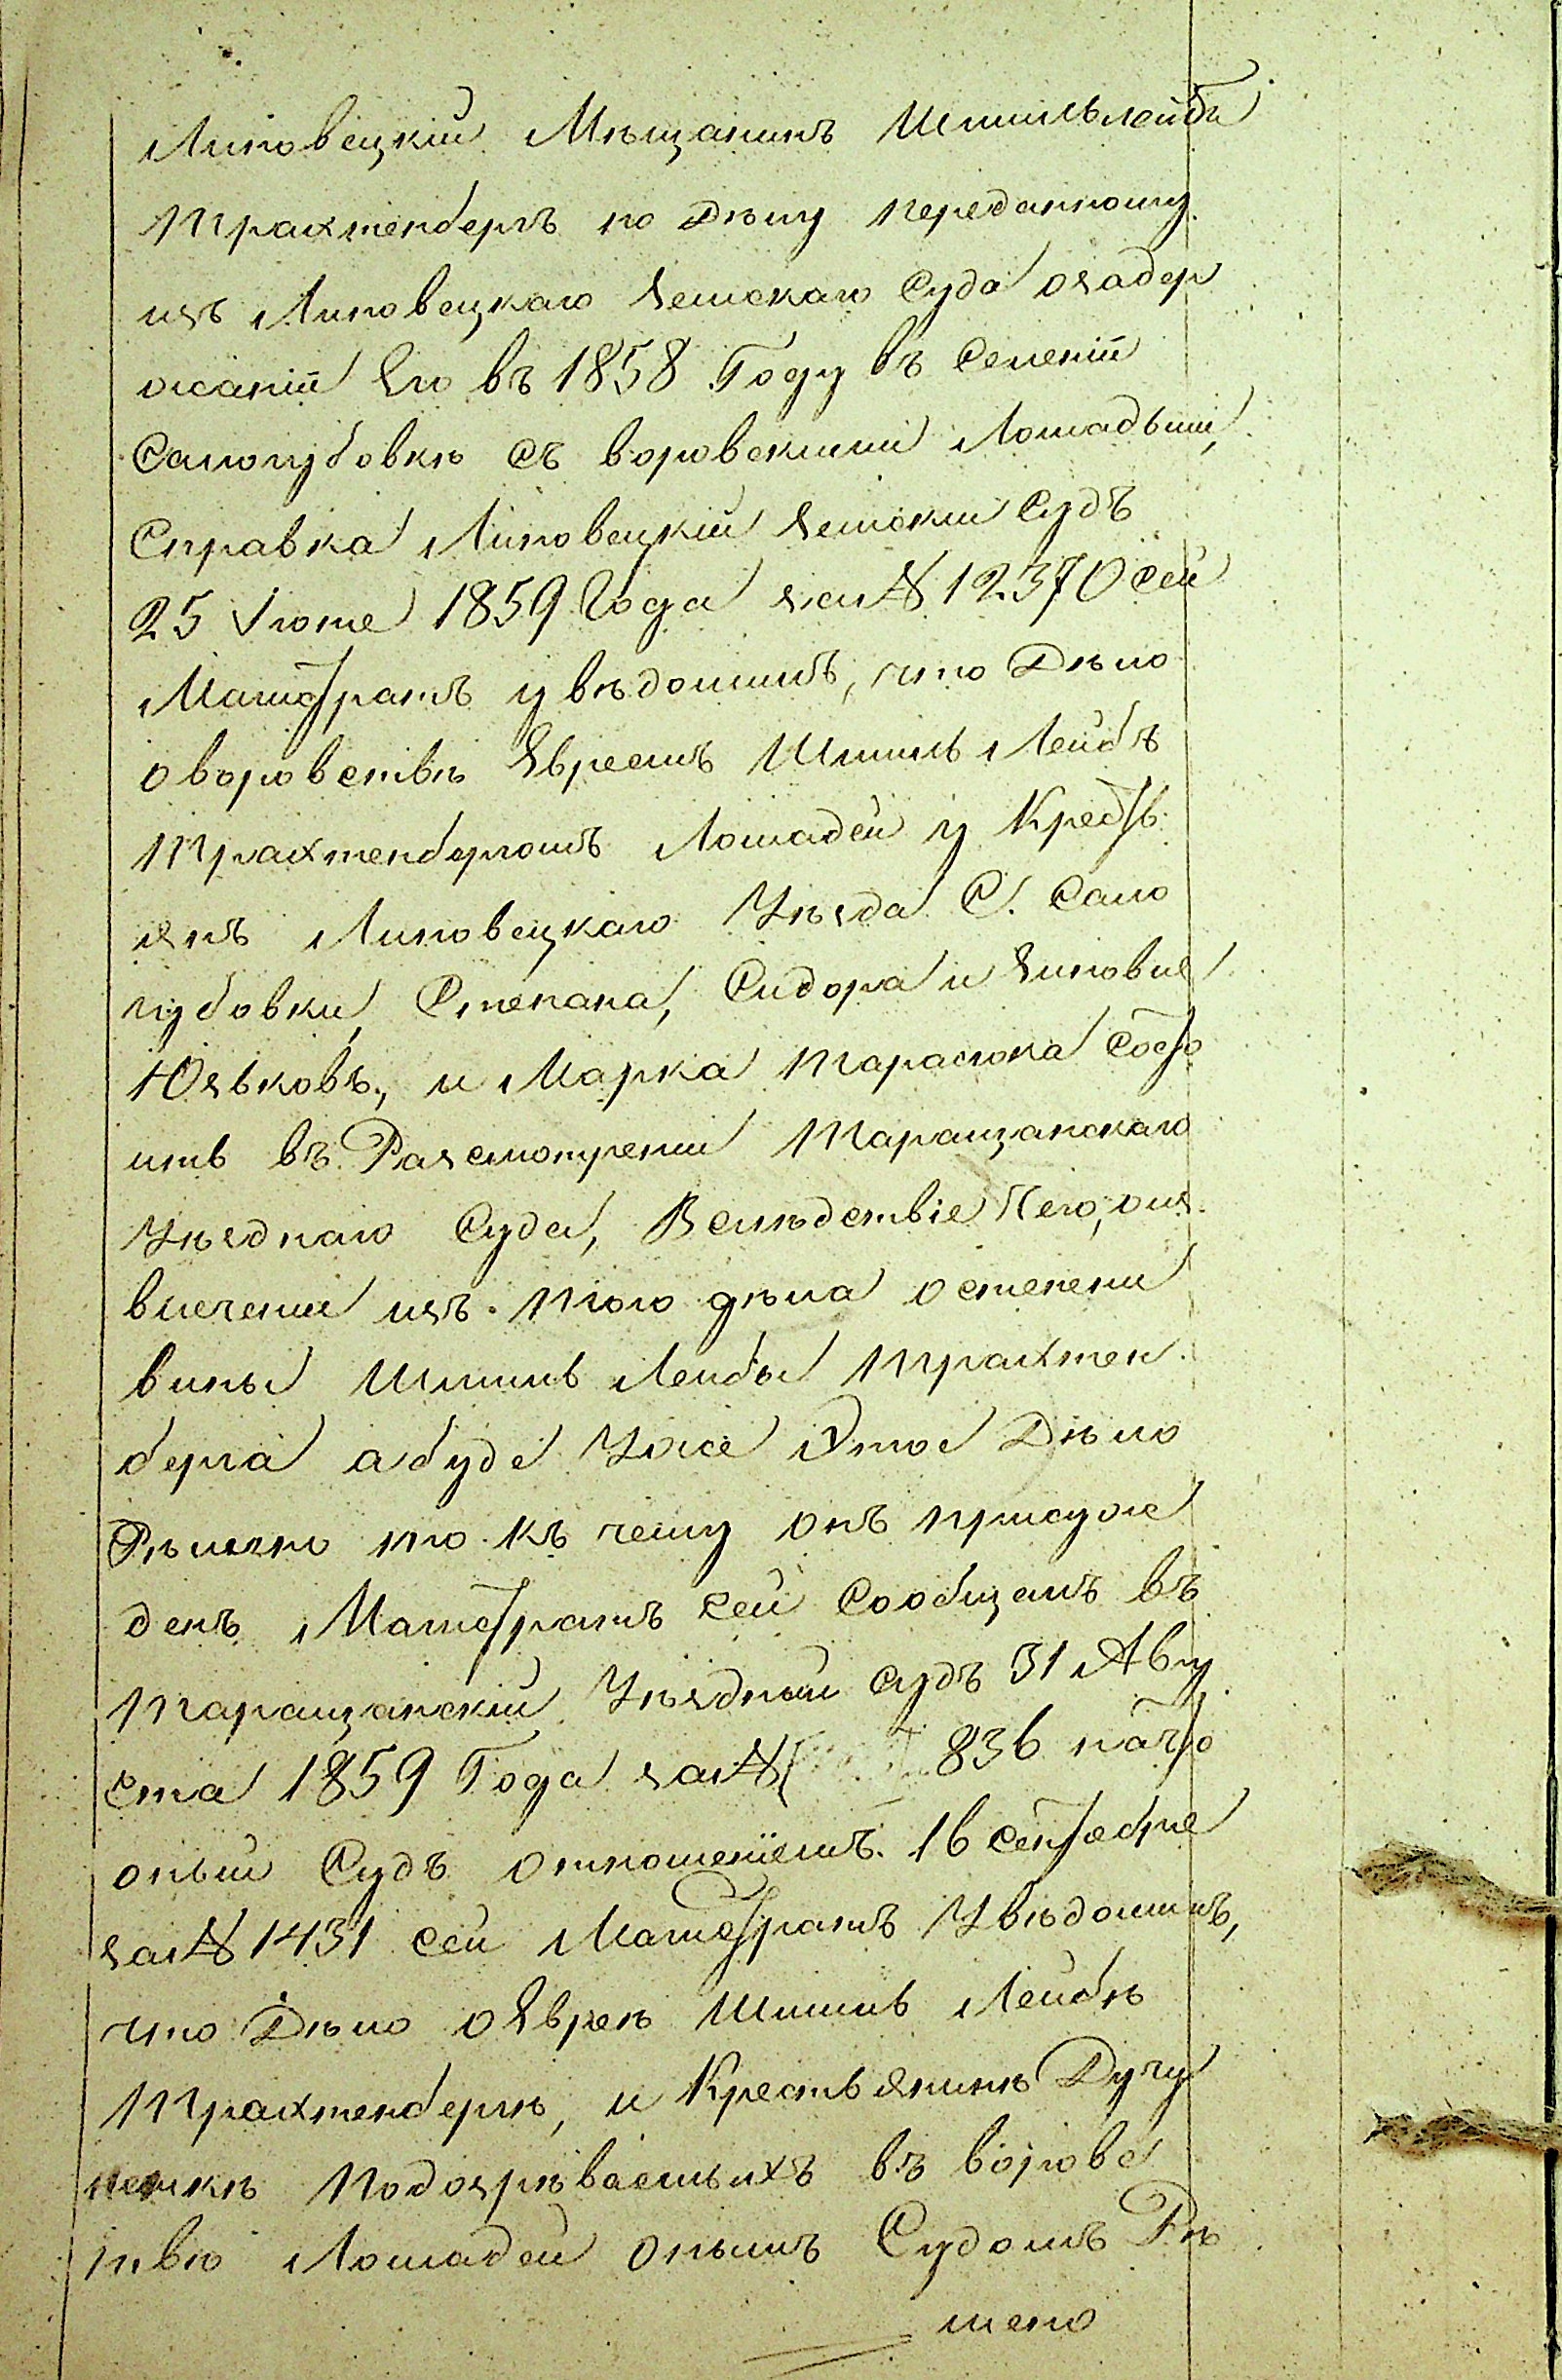 Липовецкій Мѣщанинъ Шмильлейба
Трахтенбергъ по Дѣлу переданному
изъ Липовецкаго Земскаго Суда озадер
жаніи Его въ 1858 Году въ Селеніи
Сологубовкѣ Съ воровскими Лошадьми,
Справка Липовецкій Земскій Судъ
25 Іюня 1859 Года за № 12370 Сей
Магистратъ увѣдомилъ, что Дѣло
о воровствѣ Евреемъ Шмиль Лейбъ
Трахтенбергомъ Лошадей у Крестья
янъ Липовецкаго Уѣзда С. Соло
губовки, Степана, Сидора и Зиновія
Юзьковъ, и Марка Тарасюка Состо
итъ въ Разсмотреніи Таращанскаго
Уѣзднаго Суда, Вслѣдствіе Чего, оиз
влеченіи изъ того дѣла о степени
вины Шмиль Лейбы Трахтен
берга а буде Уже Это Дѣло
Рѣшено то къ чему онъ присуж
денъ Магистратъ Сей Сообщалъ въ
Таращанскій Уѣздный Судъ 31 Авгу
ста 1859 Года за № 836 на что
оный Судъ отношеніемъ 16 Сентября
за № 1431 Сей Магистратъ Увѣдомилъ,
что Дѣло о Евреѣ Шмиль Лейбѣ
Трахтенбергѣ, и Крестьянинѣ
Подозрѣваемыхъ въ воровс
твѣ Лошадей онымъ Судомъ Рѣ
шено